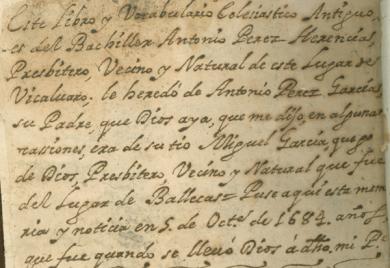 Este Libro y Vocabulario Eclesiastico Antiguo,
es del Bachiller Antonio Perez Herencias,
Presbitero, Vecino y Natural de este Lugar de
Vicalvaro, le heredó de Antonio Perez Garcia,
su Padre, que Dios aya, que me dijo, en algunas
ocasiones, era de su tio Miguel Garcia, que go
de Dios, Presbitero, Vecino y Natural que fue
del Lugar de Ballecas= Puse aqui esta memo
ria y noticia en 5. de Octe. de 1684. años
que fue quando se llevó Dios á dho. mi Pe.